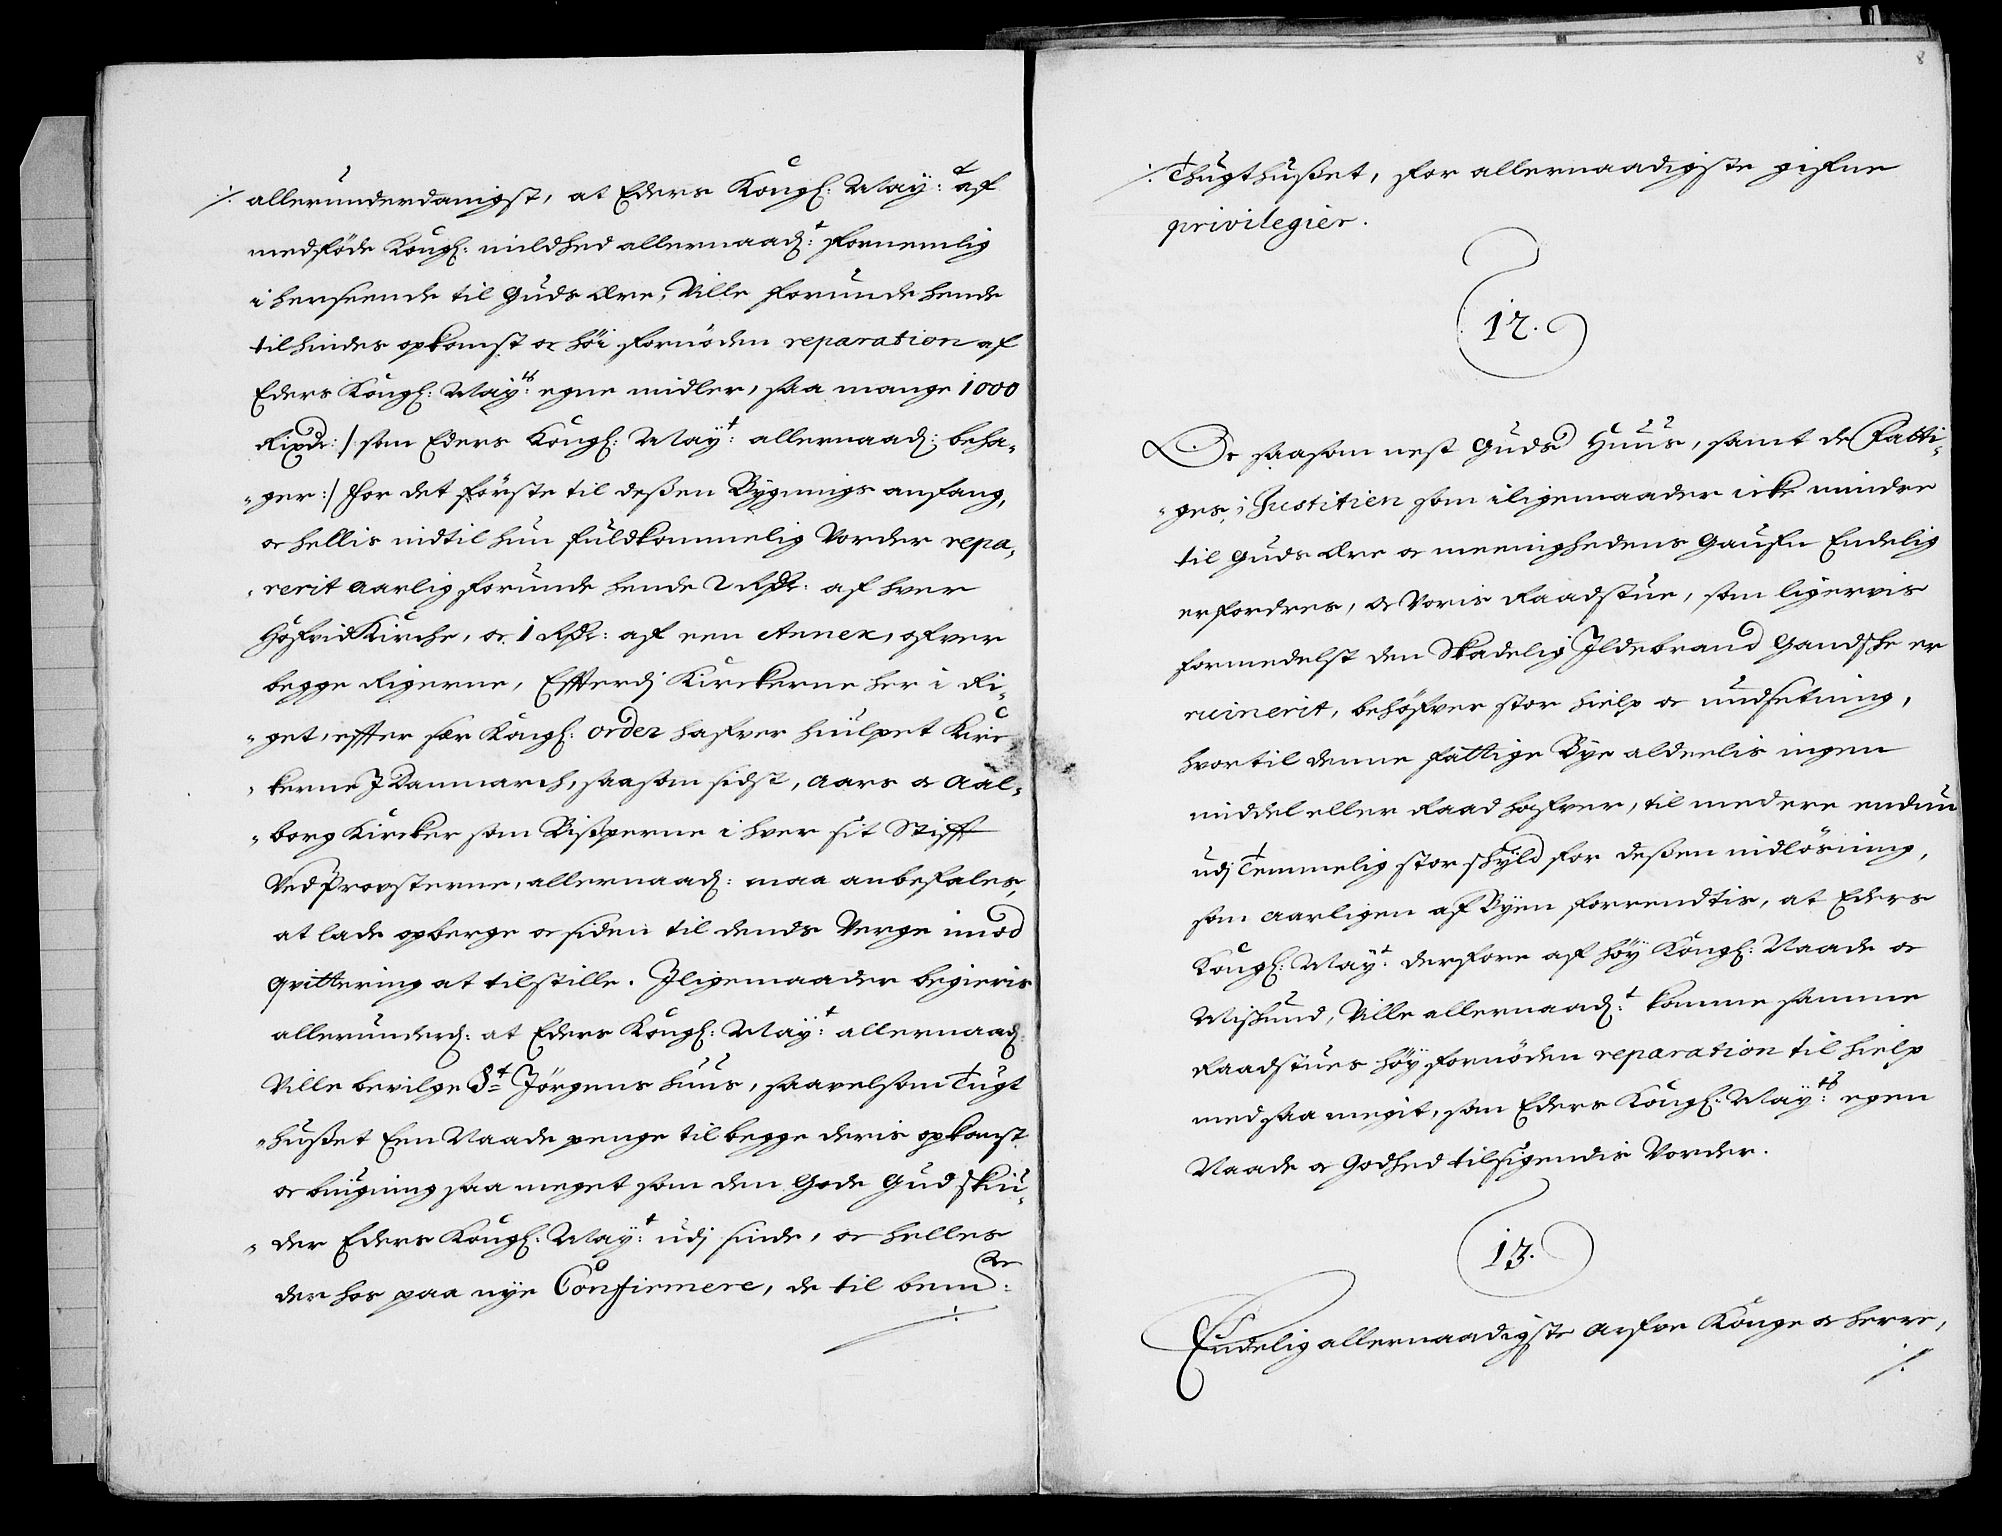 /. allerunderdanigst, at Eders Kongl: May:t af
medföde Kongl: mildhed allernaad:t fornemlig
i henseende til Guds Ære, Ville forunde hende
til hindes opkomst oc höi fornöden reparation af
Eders Kongl: May:ts egne midler, saa mange 1000
Rixdr: /: som Eders Kongl: May:t allernaad: beha-
-ger :/ for det förste til deßen Bygnings anfang,
oc hellis indtil hun fuldkommelig Vorder repa-
-rerit aarlig forunde hende 2 Rdr: af hver
HofvidKirche, oc 1 Rdr: af een Annex, ofver
begge Rigerne, Effterdj Kirckerne her i Ri-
-get, effter sær Kongl: order hafver hiulpet Kirc
-kerne J Danmarch, saasom sidst, Aars oc Aal-
-borg Kircker som Bisperne i hver sit Stifft
Ved Provsterne, allernaad: maa anbefales,
at lade opberge oc siden til dends Verge imod
qvittering at tilstille. Jligemaader begieris
allerunderd: at Eders Kongl: May:t allernaad:
Ville bevilge St Jörgens Huus, saavelsom Tugt
-hußet Een Naade penge til begge deris opkomst
oc bygning saa meget som den Gode Gud skiu-
-der Eders Kongl: May:t udj sinde, oc helles
der hos paa nye Confirmere, de til bemte:
/. Thugthußet, for allernaadigste gifne
privilegier.
12.
Oc saasom nest Guds Huus, samt de Fatti-
-ges, i Justitien som iligemaader icke mindre
til Guds Ære oc meenighedens Gaufn Endelig
erfordres, oc Voris Raadstue, som ligervis
formedelst den Skadelig Jldebrand Gandske er
ruinerit, behöfver stor hielp oc undsetning,
hvortil denne fattige Bye aldeelis ingen
middel eller Raad hafver, til med ere endnu
udj Temmelig stor skyld for deßen indlösning,
som aarligen af Byen forrendtis, at Eders
Kongl: May:t derfore af höy Kongl: Naade oc
Miskund, Ville allernaad:t komme samme
Raadstues höy fornöden reparation til hielp
med saa megit, som Eders Kongl: May:ts egen
Naade oc Godhed tilsigendis Vorder.
13.
Endelig allernaadigste Arfve Konge oc Herre,
/.